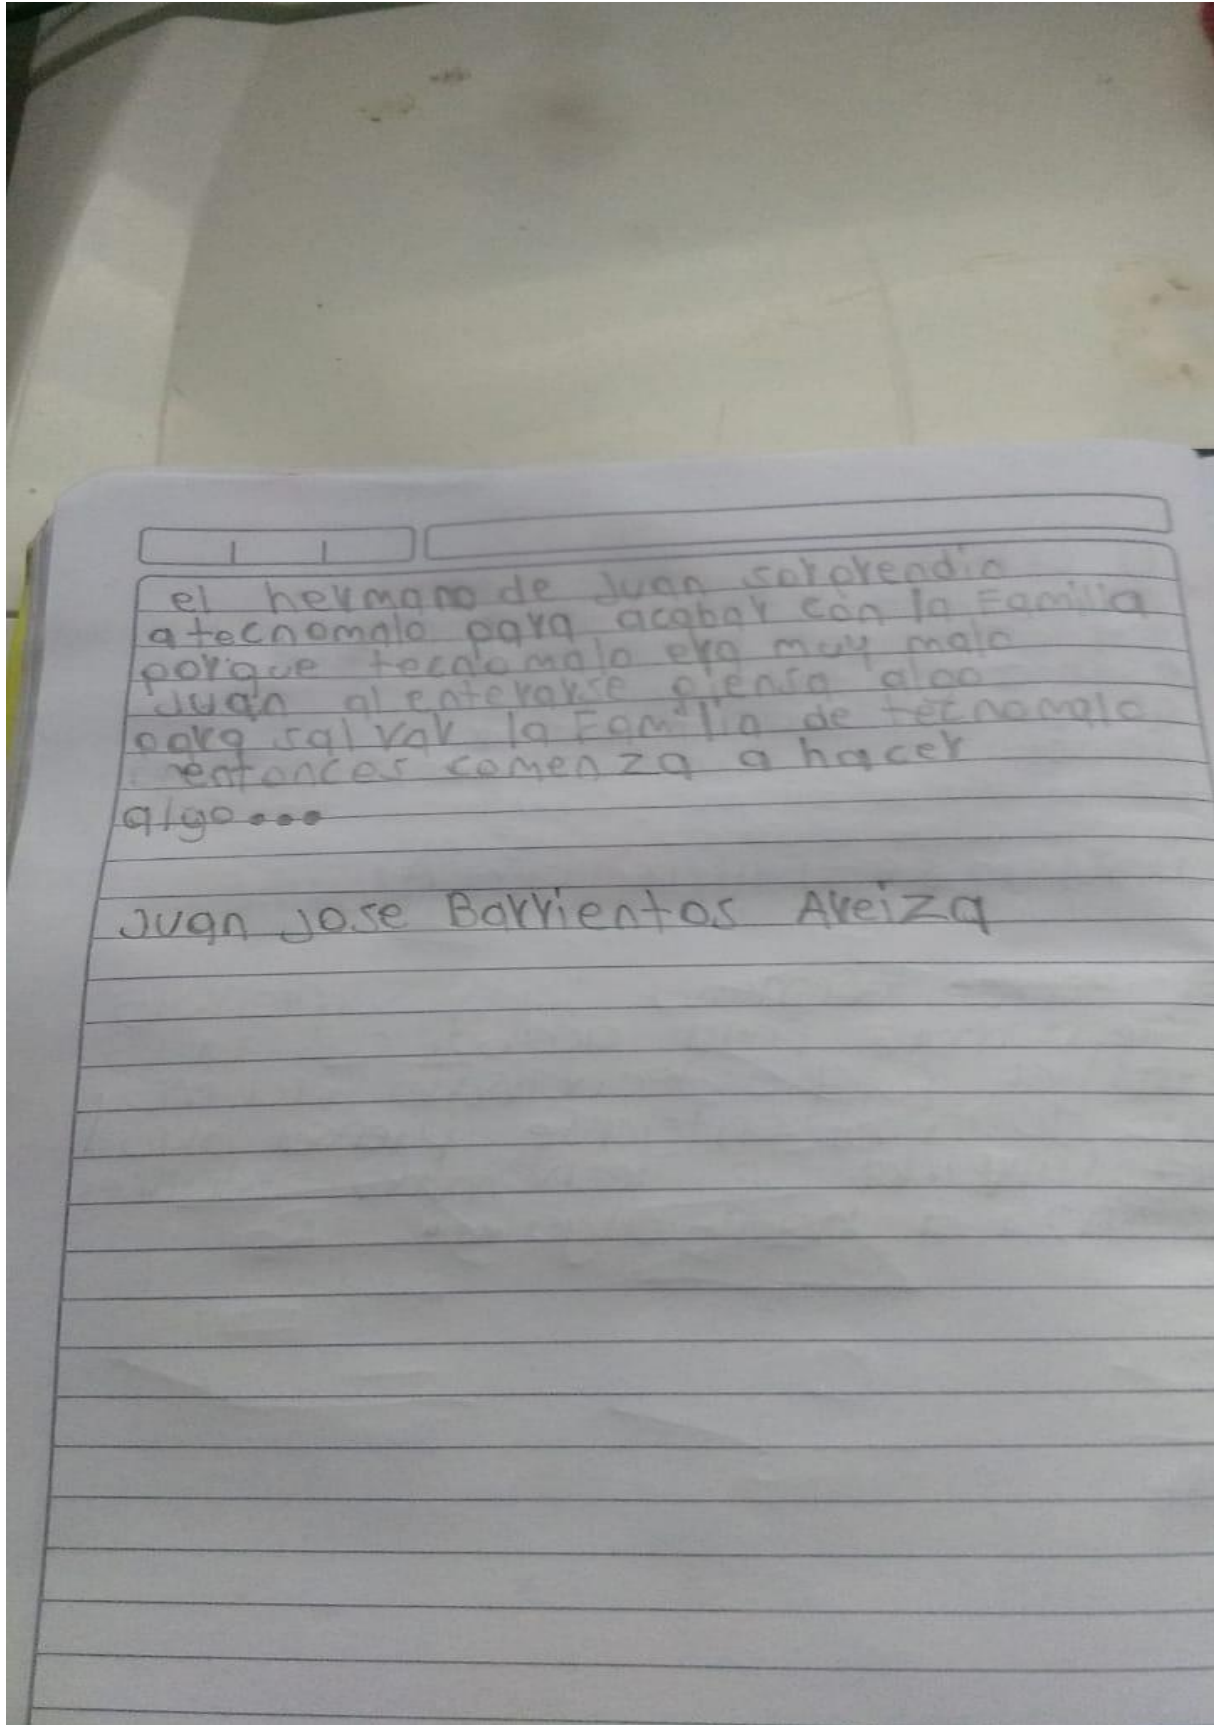 el hermano de Juan sorprendio
a tecnomalo para acabar con la Familia
porque tecnomalo era muy malo
Juan al enterarse piensa algo
para salvar la Familia de tecnomalo
entonces comenza a hacer
algo...
Juan Jose Barrientos Areiza